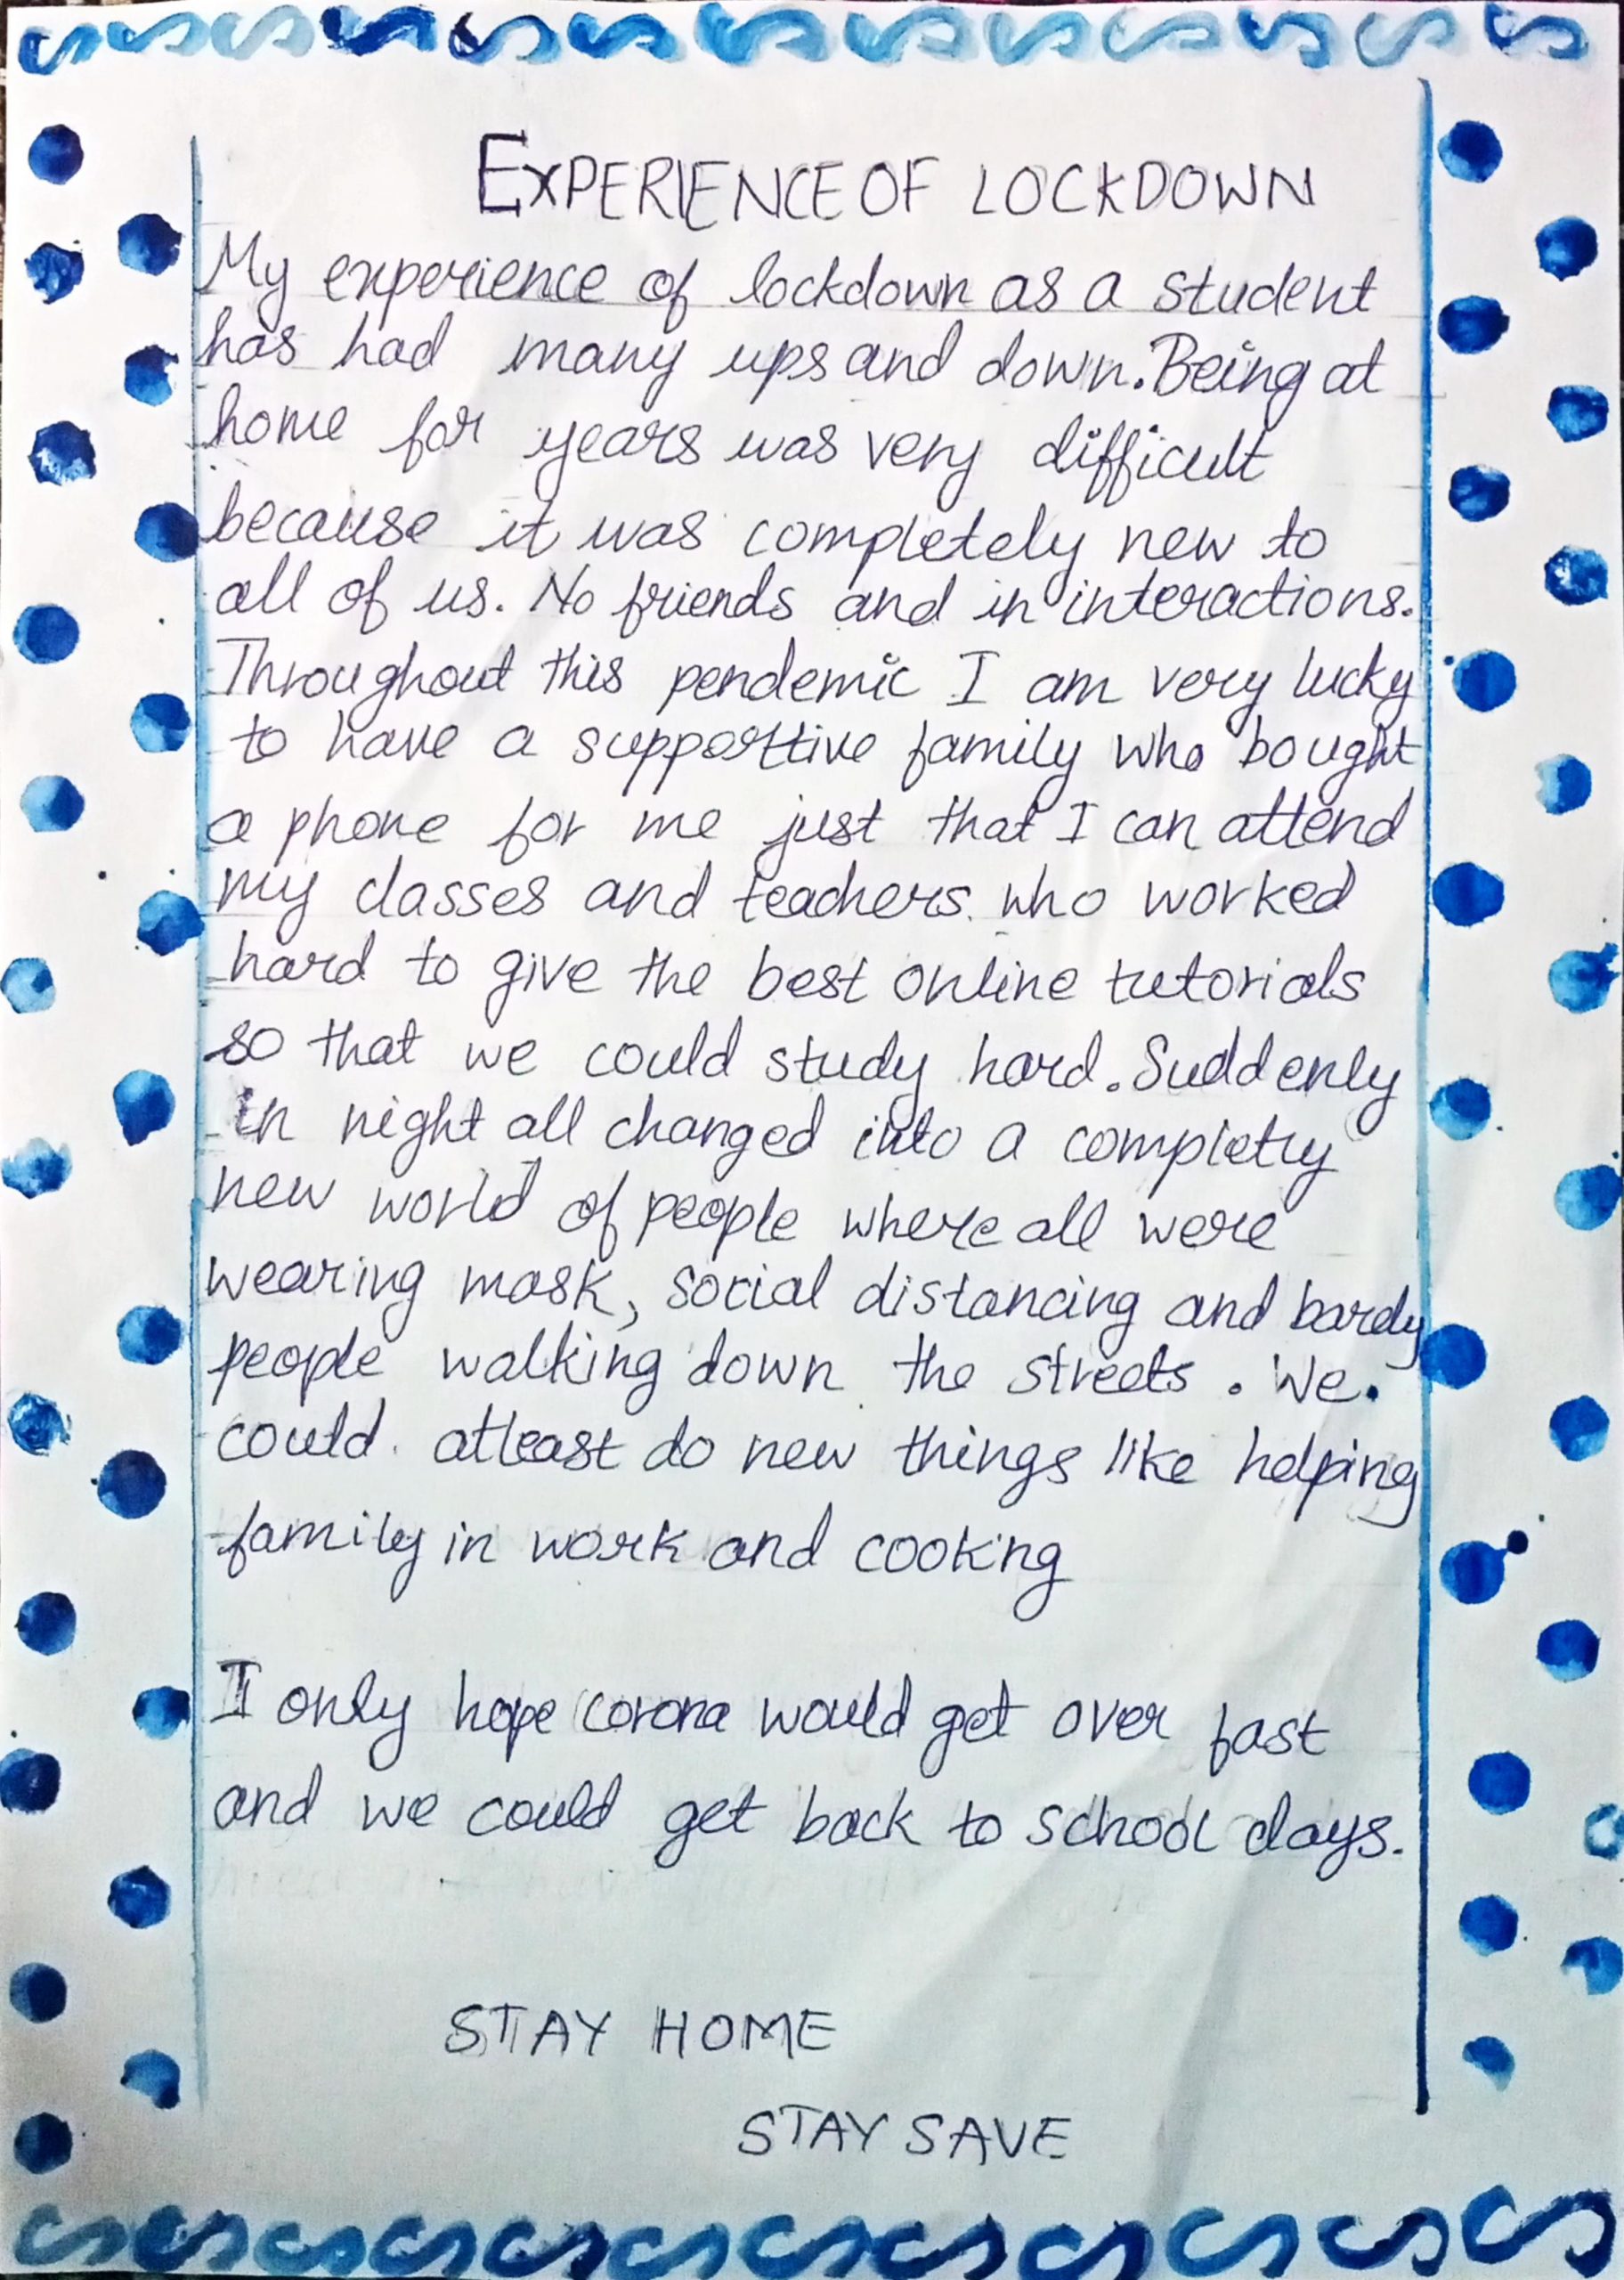 EXPERIENCE OF LOCKDOWN
My experience of lockdown as a student
has had many ups and down. Being at
home for years was very difficult
because it was completely new to
all of us. No friends and in interactions.
Throughout this pendemic I am very lucky
to have a supporttive family who bought
a phone for me just that I can attend
my classes and teachers. who worked
hard to give the best online tutorials
so that we could study hard. Suddenly
in night all changed into a completly
new world of people where all were
wearing mask, social distancing and bardy
people walking down the streets. We.
could. atleast do new things like helping
family in work and cooking
I only hope corona would get over fast
and we could get back to school days.
STAY HOME
STAY SAVE